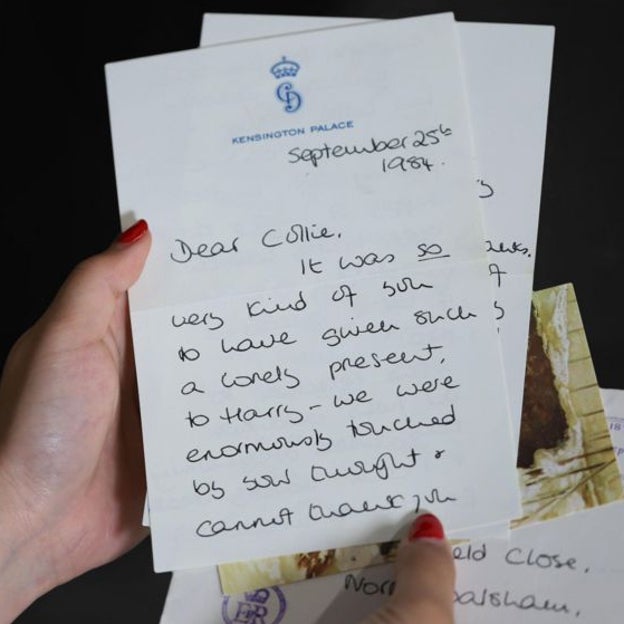 KENSINGTON PALACE
September 25th
1984.
Dear Collie,
It was so
very kind of you
to have given such
a lovely present,
to Harry - we were
enormously touched
by your thought &
cannot thank you
eld Close,
Nor alsham,